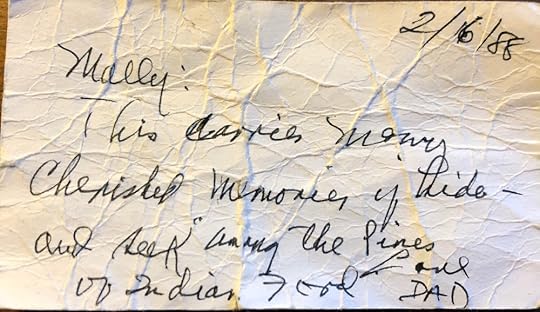 2/6/88
Molly:
This carries many
Cherished memories of hide-
and seek" among the Pines
of Indian Love
DAD